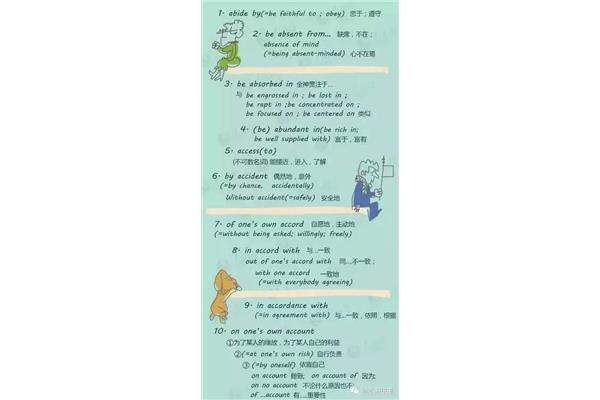 1. abide by(=be faithful to ; obey) 忠于；遵守
2. be absent from... 缺席，不在；
absence of mind
(=being absent-minded) 心不在焉
3. be absorbed in 全神贯注于…
与 be engrossed in ; be lost in ;
be rapt in ;be concentrated on ;
be focused on ; be centered on 类似
4. (be) abundant in(be rich in;
be well supplied with) 富于，富有
5. access(to)
(不可数名词) 能接近，进入，了解
6. by accident 偶然地，意外
(=by chance, accidentally)
Without accident(=safely) 安全地
7. of one's own accord 自愿地，主动地
(=without being asked; willingly; freely)
8. in accord with 与…一致
out of one's accord with 同…不一致；
with one accord 一致地
(=with everybody agreeing)
9. in accordance with
(=in agreement with) 与…一致，依照，根据
10. on one's own account
①为了某人的缘故，为了某人自己的利益
②(=at one's own risk) 自行负责
③ (=by oneself) 依靠自己
on account 赊账; on account of 因为;
on no account 不论什么原因也不
of …account 有…重要性